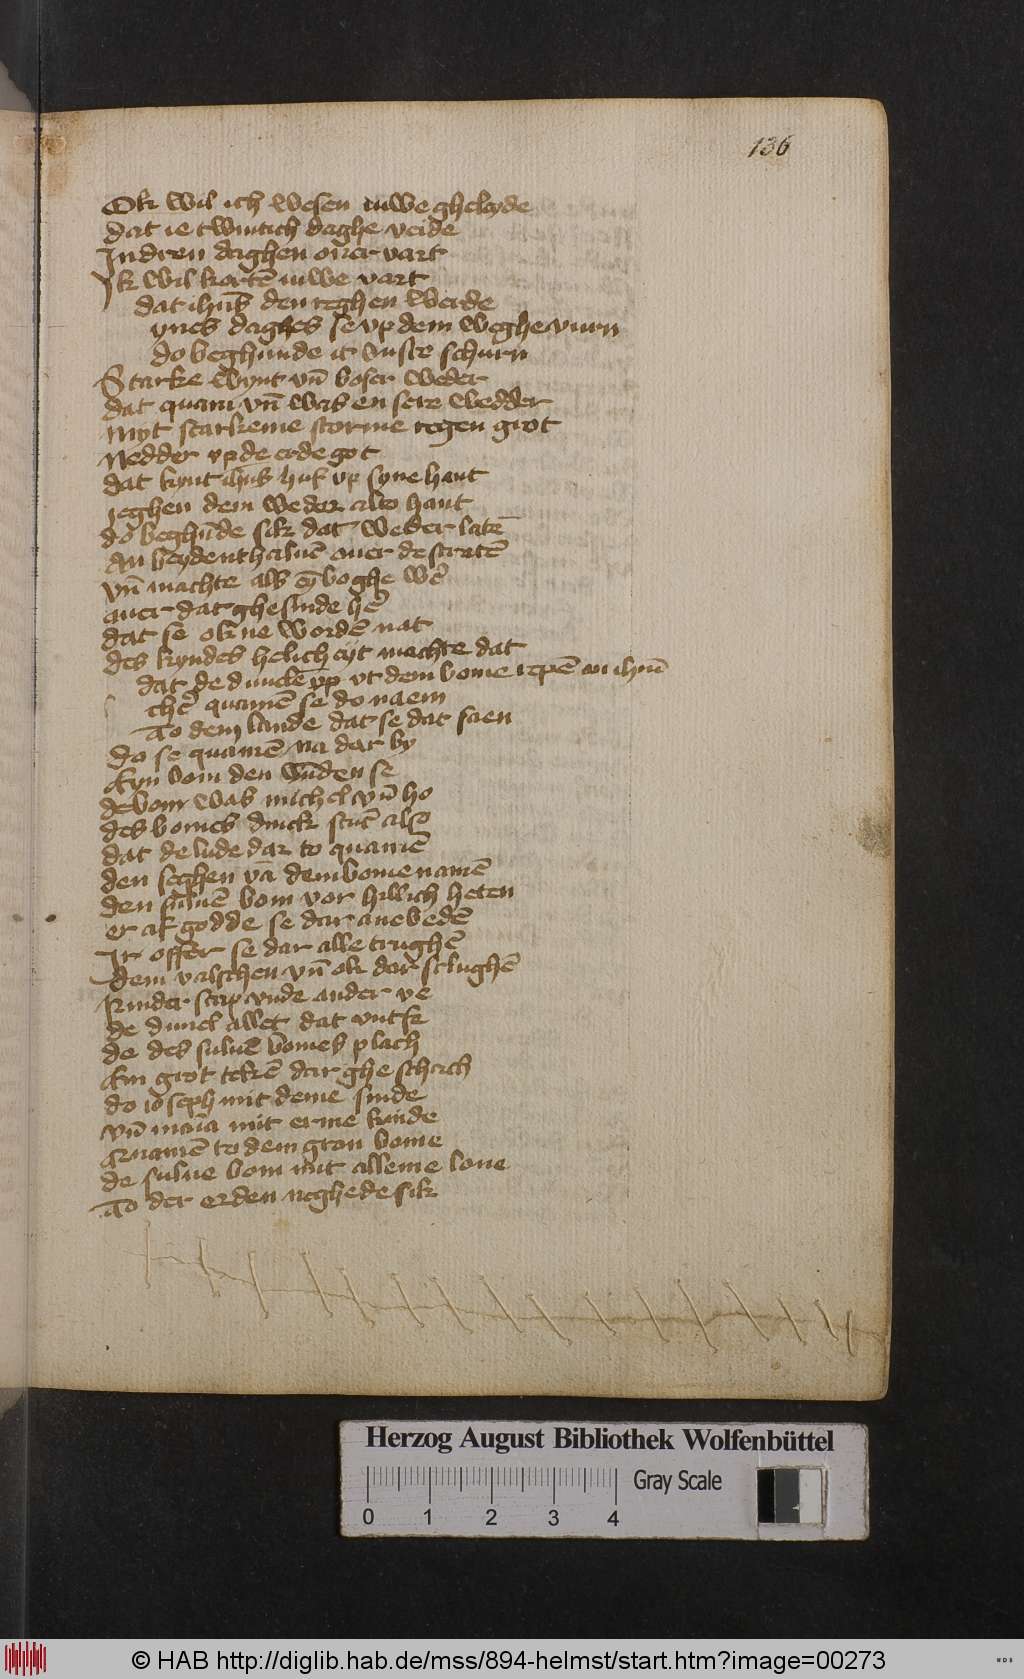 136
Ok wil ich wesen iuwe gheleyde
dat ie twintich daghe veide
In dren daghen ouer vart
Ik wil kortē iuwe vart
dat ihūs den reghen werde
ynes daghes se vp dem weghe vurn
do beghunde it vuste schurn
Starke wynt vn̄ boser weder
dat quam vn̄ was en sere wedder
myt starkeme storme regen grot
Nedder vp de erde got
dat kynt ihūs huf vp syne hant
ieghen dem weder alto hant
do beghūde sik dat weder latē
An beydenthaluē ouer de stratē
vn̄ machte als eȳ boghe wē
auer dat ghesinde hē
dat se ok ne wordē nat
des kyndes helicheyt machte dat
dat de duuele vp vt dem bome repē an ihm̄
quamē se do naem
To dem lande dat se dat saen
do se quamē na dar by
Eyn bom den vūden se
de bom was michel vn̄ ho
des bomes druck stūt also
dat de lude dar to quamē
den seghen vā dem bome namē
den suluē bom vor hillich heten
er afgodde se dar anebedē
Ir offer se dar alle trughē
dem valschen vn̄ ok dar sclughē
Rinder scap vnde ander ve
de duuel allet dat vntfe
de des suluē bomes plach
Ein grot tekē dar ghe schach
do ioseph mit deme sinde
vn̄ maria mit erme kinde
Quamē to dem gron bome
de sulue bom mit alleme loue
To der erden neghede sik
Herzog August Bibliothek Wolfenbüttel
Gray Scale
0 1 2 3 4
© HAB http://diglib.hab.de/mss/894-helmst/start.htm?image=00273